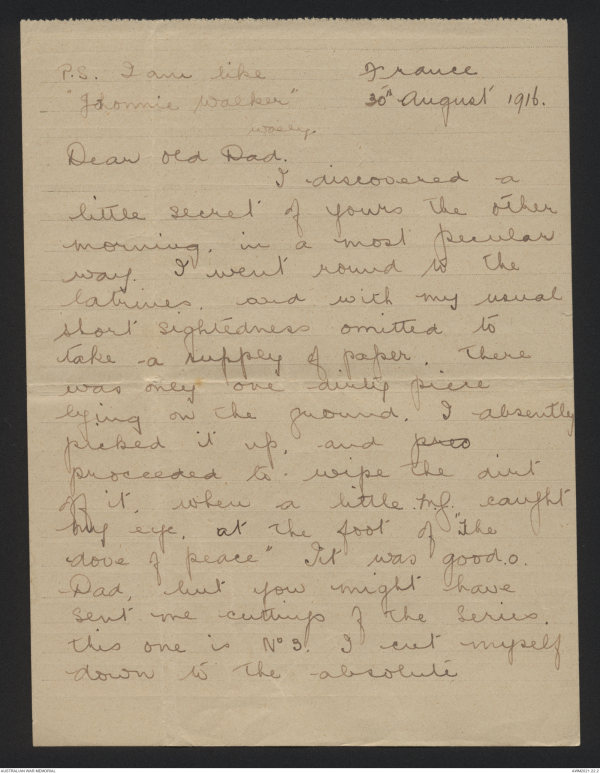 P.S. I am like
"Jhonnie Walker"
France
30th August 1916.
Dear old Dad.
I discovered a
little secret of yours the other
morning, in a most peculiar
way. I went round to the
latrines, and with my usual
short sightedness omitted to
take a supply of paper. There
was only one dirty piece
lying on the ground. I absently
picked it up, and proc
proceeded to wipe the dirt
of it, when a little caught
my eye, at the foot of "The
dove of peace" It was good.o.
Dad, but you might have
sent me cuttings of the series.
this one is No 3. I cut myself
down to the absolute
AUSTRALIAN WAR MEMORIAL